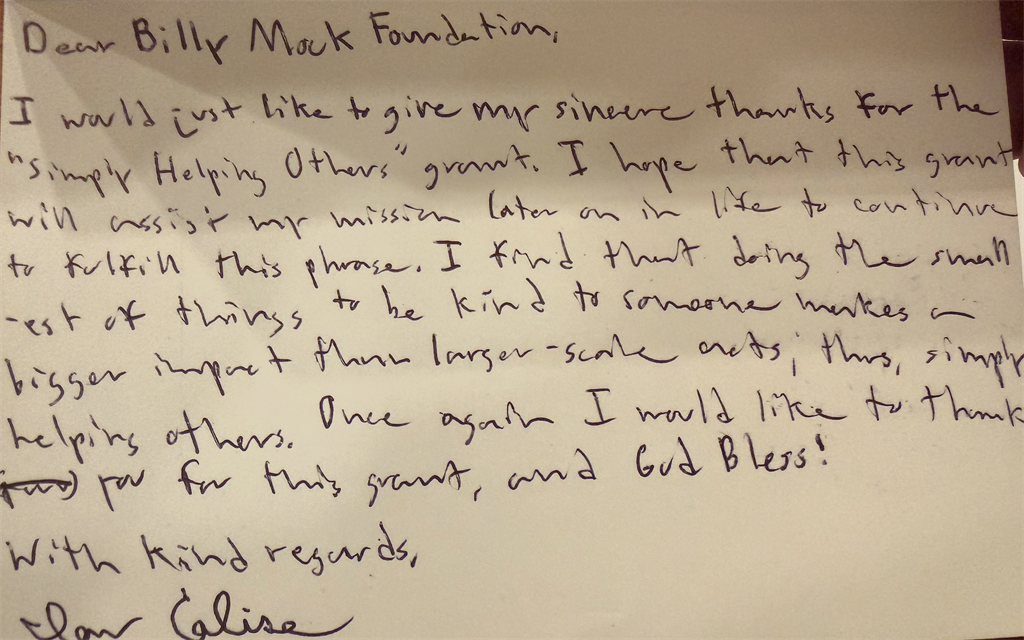 Dear Billy Mock Foundation,
I would just like to give my sincere thanks for the
"Simply Helping Others" grant. I hope that this grant
will assist my mission later on in life to continue
to fulfill this phrase. I find that doing the small
-est of things to be kind to someone makes a
bigger impact than larger-scale acts; thus, simply
helping others. Once again I would like to thank
you for this grant, and God Bless!
With kind regards,
Calise